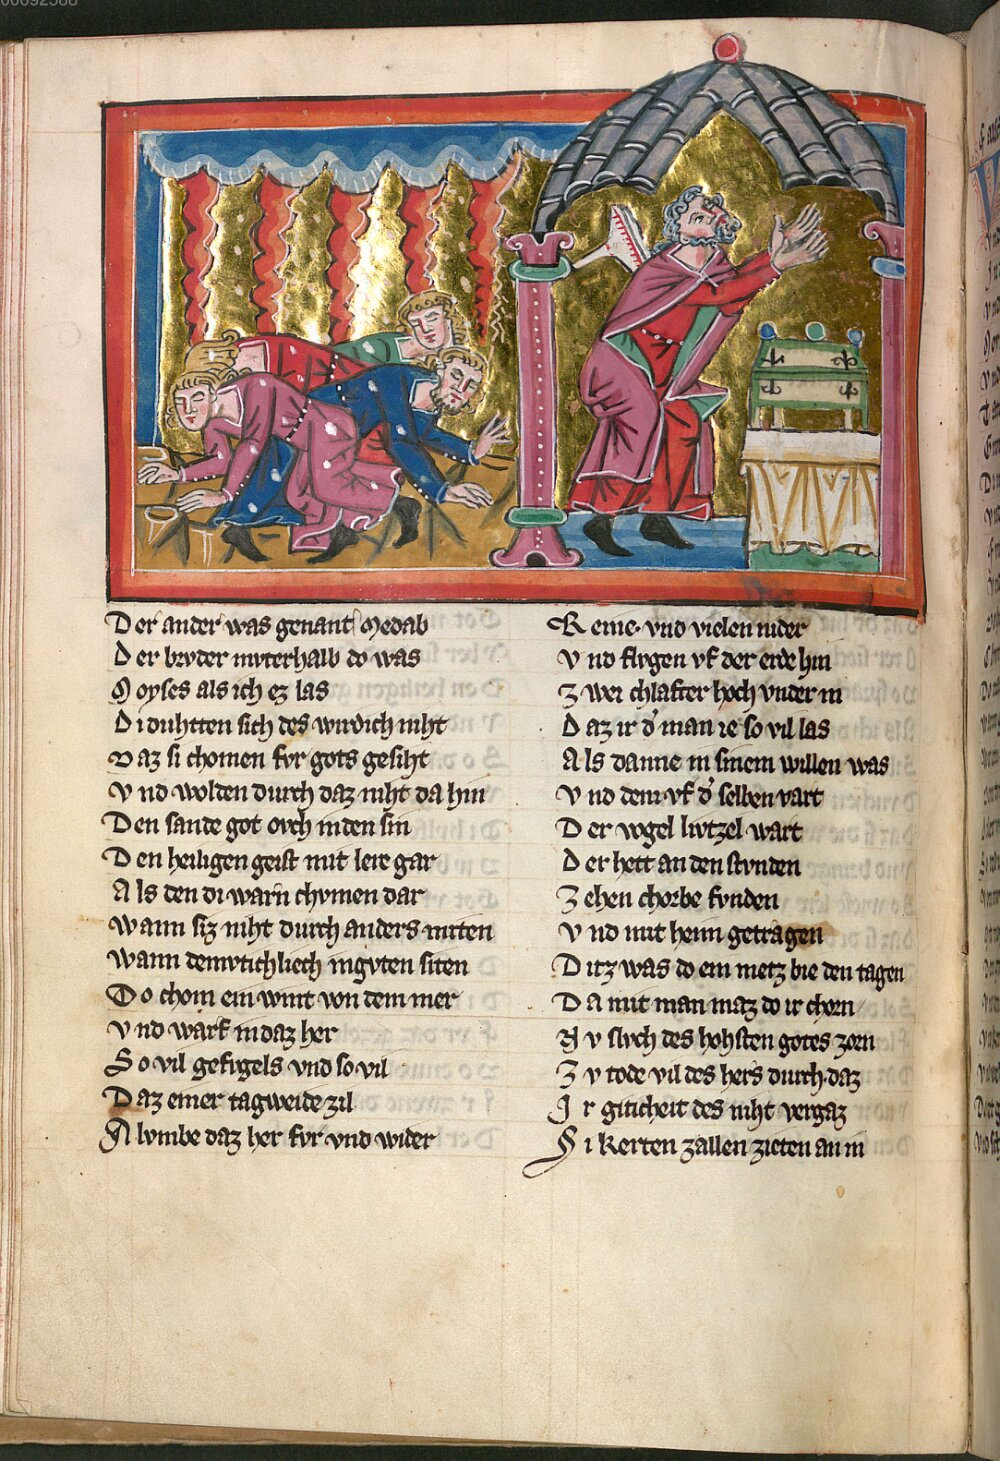 00092588
Der ander was genant Medab
Der brvder mvterhalb do was
Moyses als ich ez las
Di duhtten sich des wirdich niht
Daz si chomen fvr gots gesiht
Vnd wolden durch daz niht da hin
Den sande got ovch in den sin
Den heiligen geist mit lere gar
Als den di warn chvmen dar
Wann siz niht durch anders miten
Wann demvtichliech in gvten siten
Do chom ein wint von dem mer
Vnd warf in daz her
So vil gefvgels vnd so vil
Daz einer tagweide zil
Alvmbe daz her fvr vnd wider
Reine vnd vielen nider
Vnd flvgen vf der erde hin
Zwei chlafter hoch vnder in
Daz ir d' man ie so vil las
Als danne in sinem willen was
Vnd dem vf d' selben vart
Der vogel lvtzel wart
Der hett an den stvnden
Zehen chorbe fvnden
Vnd mit heim getragen
Ditz was do ein metz bie den tagen
Da mit man maz do ir chorn
Nv slvch des hohsten gotes zorn
Zv tode vil des hers durch daz
Ir giticheit des niht vergaz
Si kerten zallen zieten an in